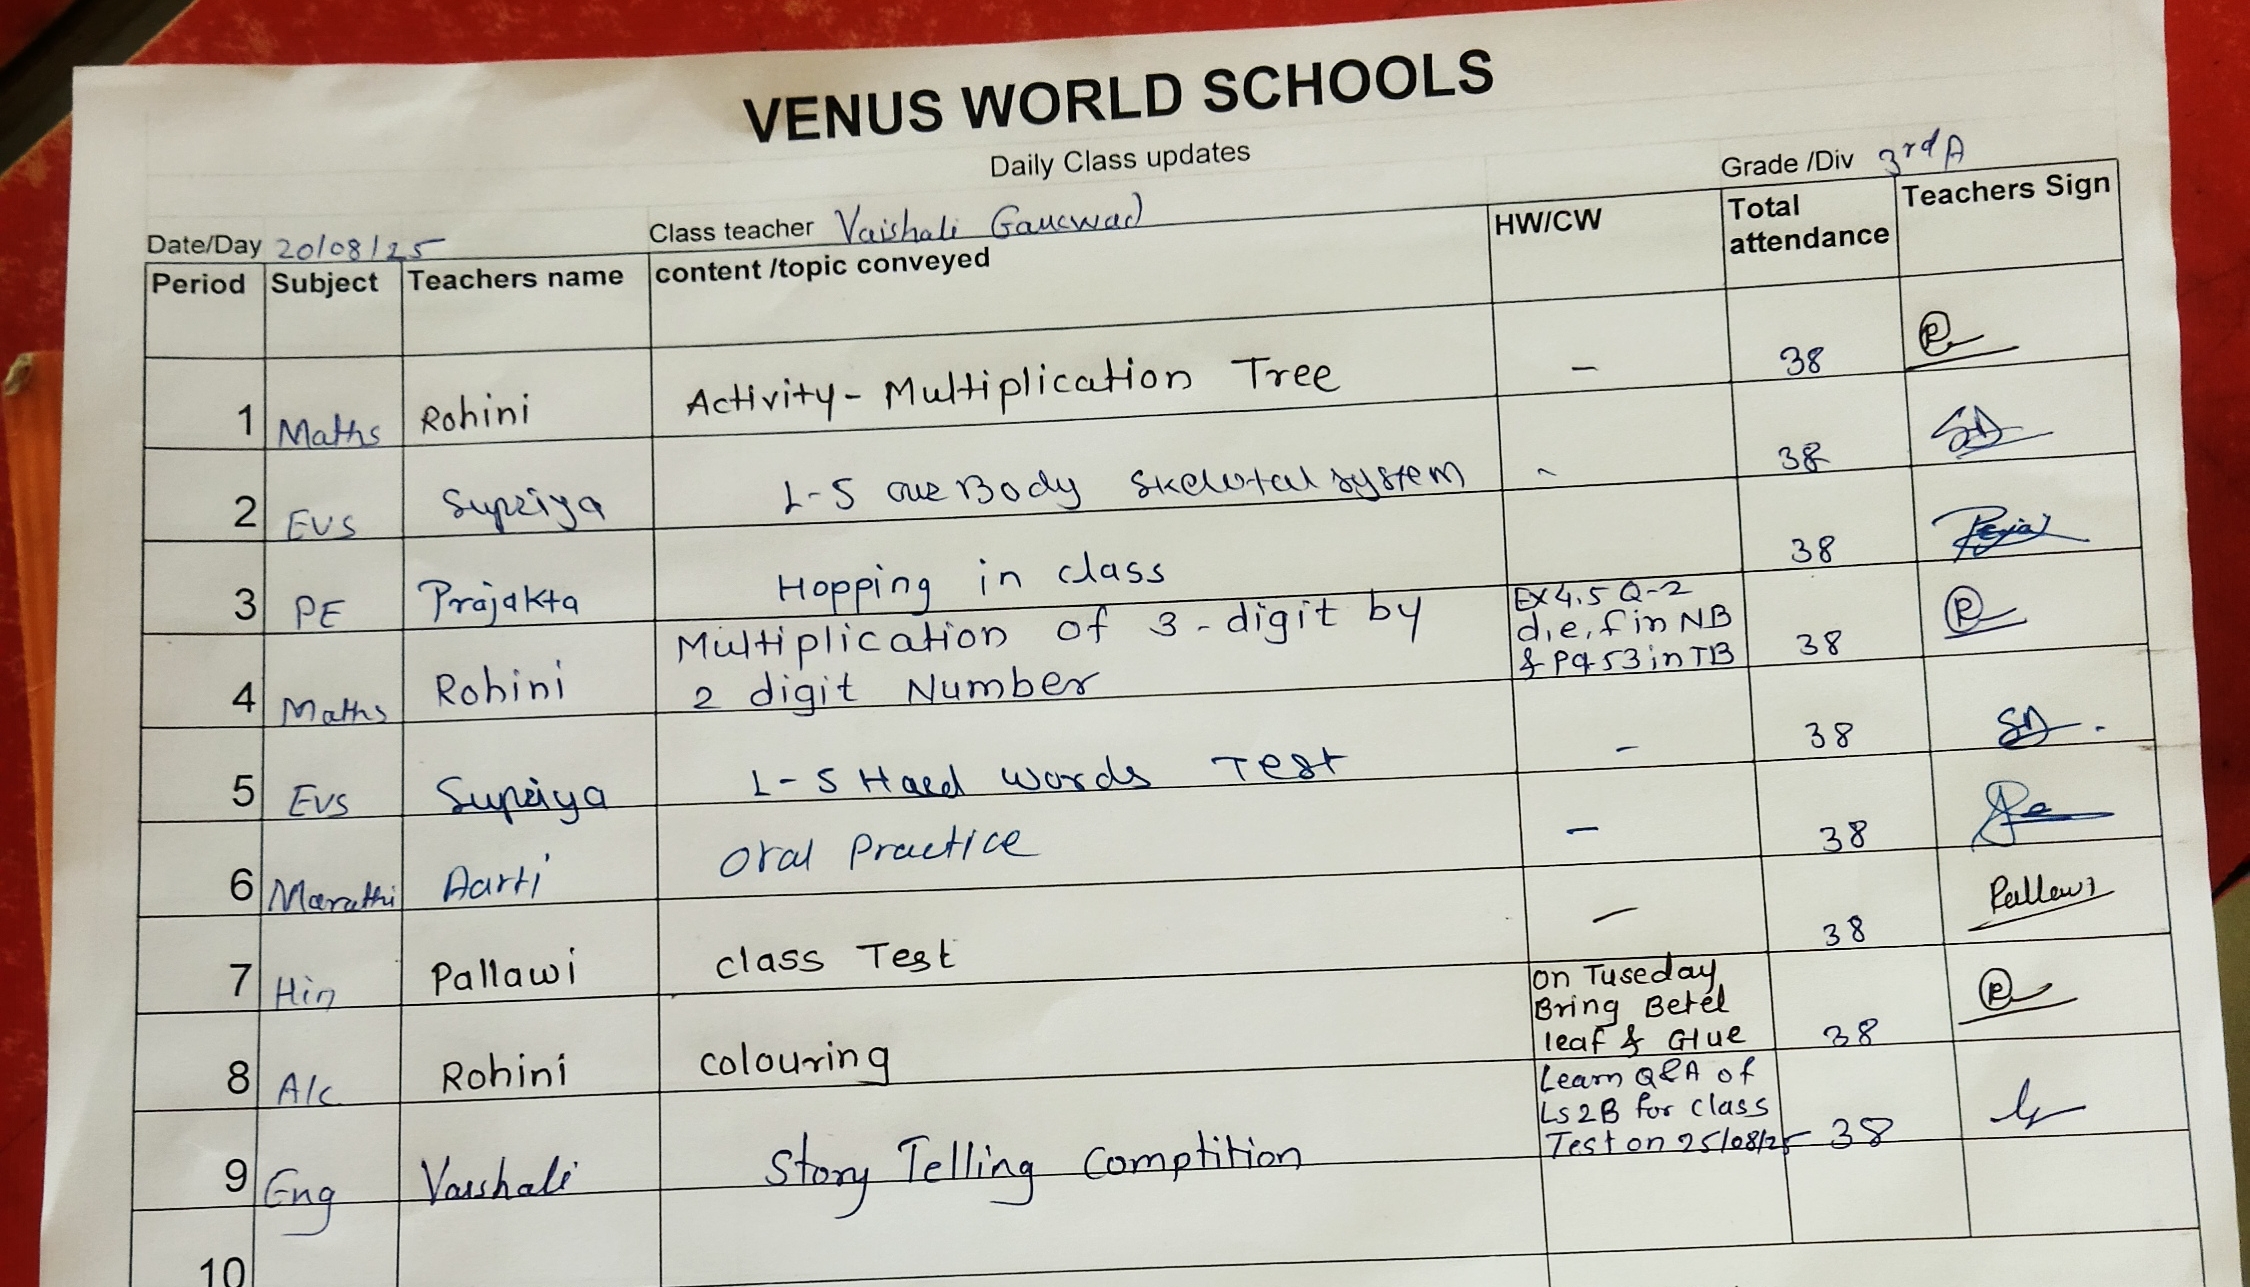 VENUS WORLD SCHOOLS
Daily Class updates
Grade /Div 3rd A
Date/Day 20/08/25 Class teacher Vaishali Gaucwad
Period Subject Teachers name content /topic conveyed HW/CW Total attendance Teachers Sign
1 Maths Rohini Activity - Multiplication Tree - 38
2 EVS Supriya L-5 our Body Skeletal system - 38
3 PE Prajakta Hopping in class 38
4 Maths Rohini Multiplication of 3-digit by
2 digit Number
Ex 4.5 Q-2
d,e,f in NB
& Pg 53 in TB
38
5 EVS Supriya L-5 Hard words Test - 38
6 Marathi Aarti Oral Practice - 38
7 Hin Pallawi class Test - 38 Pallawi
8 A/c Rohini colouring
on Tuseday
Bring Betel
leaf & Glue
38
9 Eng Vaishali Story Telling Comptition
Learn Q&A of
Ls 2B for class
Test on 25/08/25
38
10